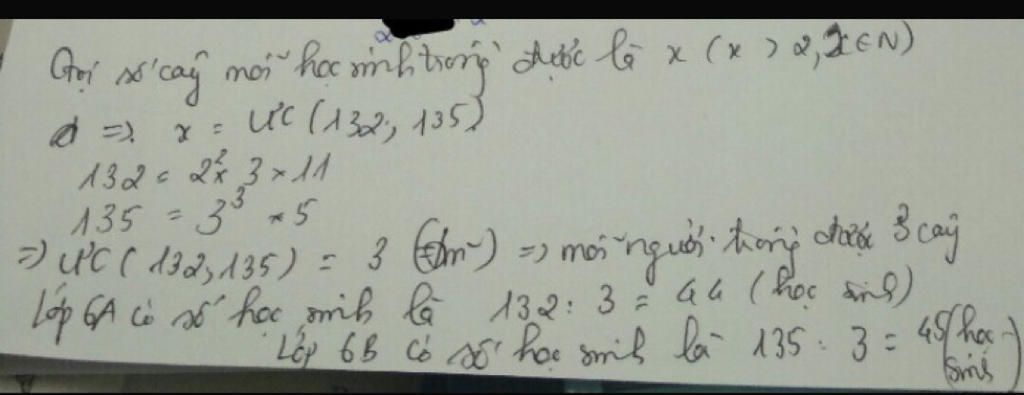 Gọi số cây mỗi học sinh trồng được là x (x > 2, x ∈ N)
=> x = ƯC(132; 135)
132 = 2² × 3 × 11
135 = 3³ × 5
=> ƯC(132, 135) = 3 (tm) => mỗi người trồng được 3 cây
Lớp 6A có số học sinh là 132 : 3 = 44 (học sinh)
Lớp 6B có số học sinh là 135 : 3 = 45 (học sinh)